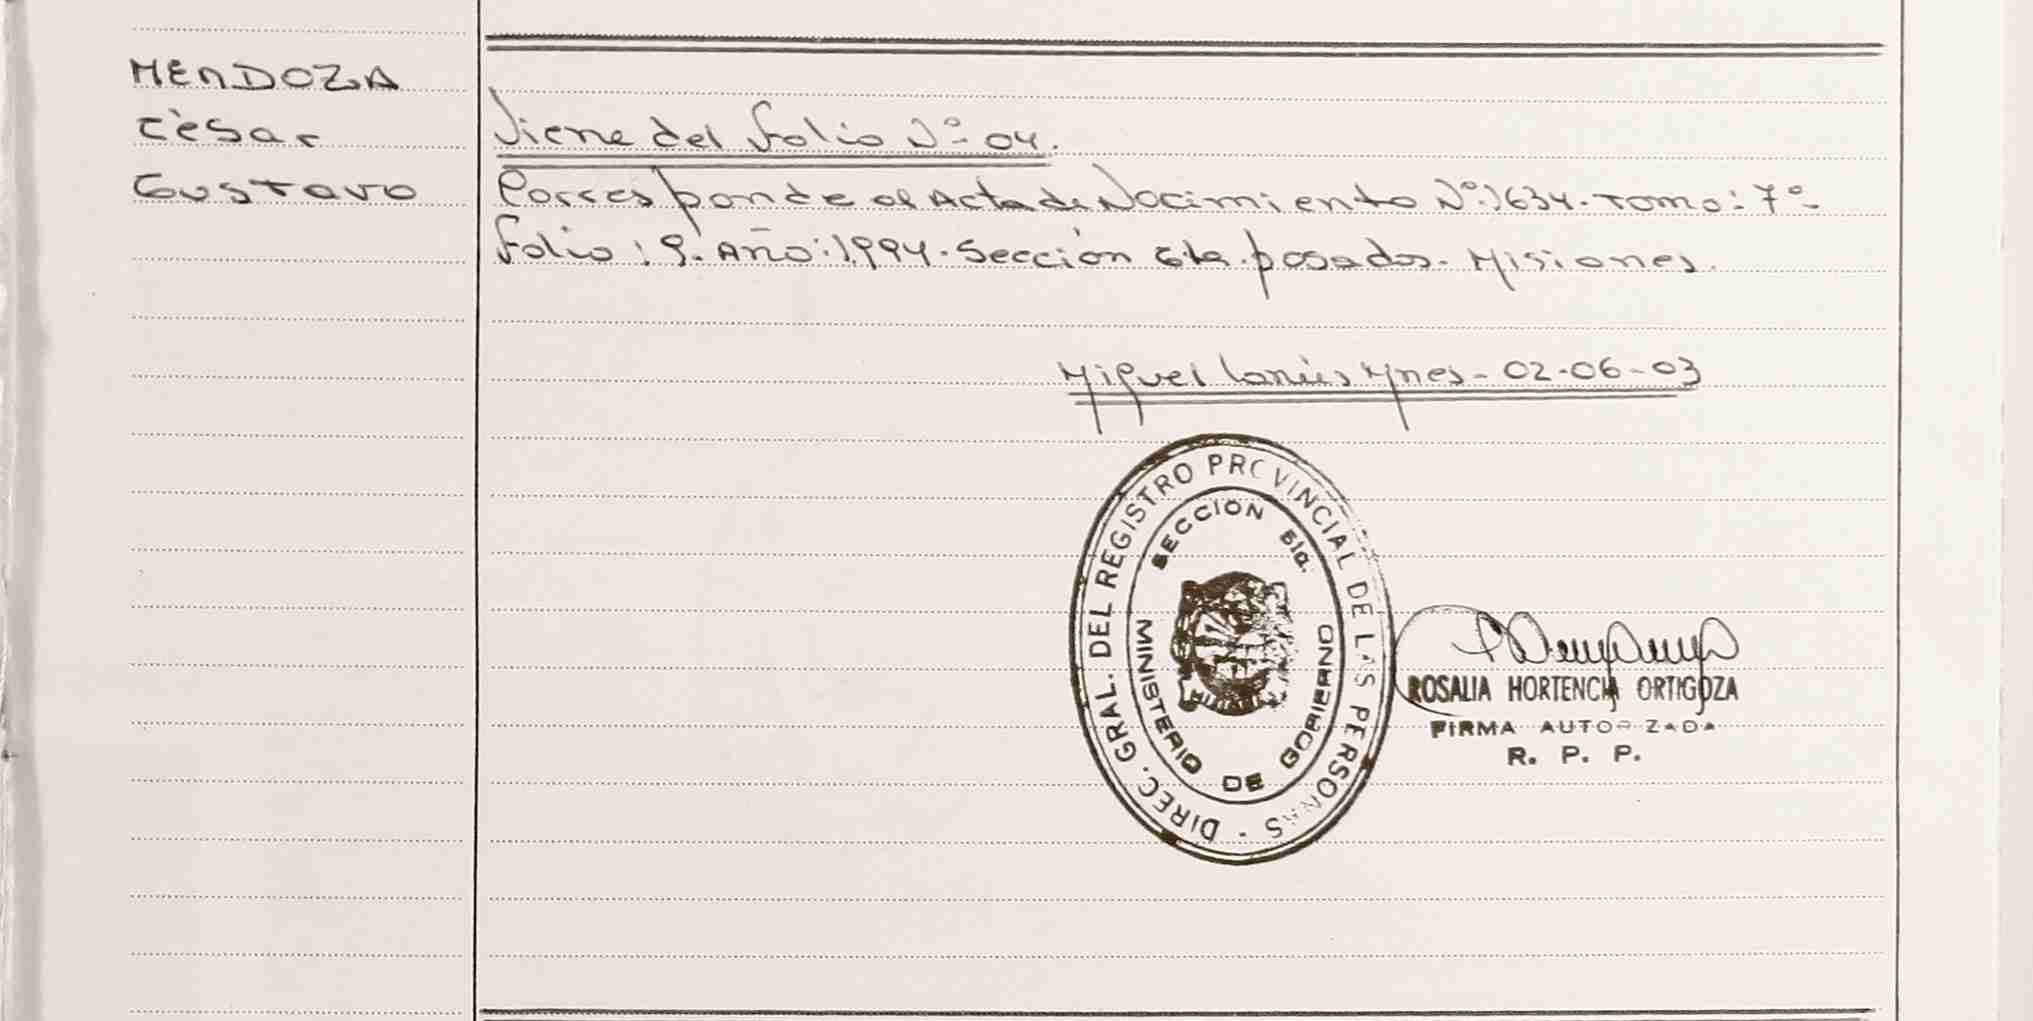 MENDOZA
Cèsar
Gustavo
Viene del folio Nº 04.
Corresponde al Acta de Nacimiento Nº: 1634. Tomo: 7º-
folio: 9. Año: 1994. Sección 6ta. posadas. Misiones.
Miguel Lanús, Mnes- 02-06-03
DIREC. GRAL. DEL REGISTRO PROVINCIAL DE LAS PERSONAS
SECCION 5ta.
MINISTERIO DE GOBIERNO
ROSALIA HORTENCIA ORTIGOZA
FIRMA AUTORIZADA
R. P. P.